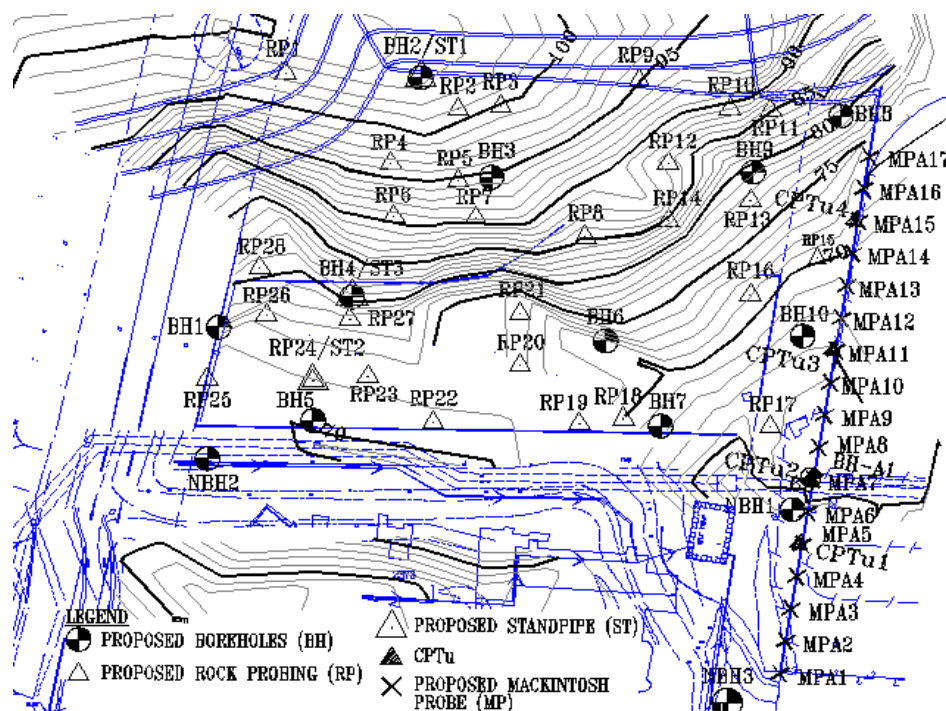 RP1
BH2/ST1
100
RP9
95
90
RP2
RP3
RP10
85
RP11
80
BH8
RP4
RP5
BH3
RP12
BH9
75
MPA17
MPA16
RP6
RP7
RP8
RP14
RP13
CPTu4
MPA15
RP28
BH4/ST3
RP15
70
MPA14
RP16
MPA13
RP26
RP27
RP21
BH1
BH6
BH10
MPA12
RP24/ST2
RP20
CPTu3
MPA11
RP25
RP23
MPA10
BH5
RP22
RP19
RP18
BH7
RP17
MPA9
70
MPA8
NBH2
CPTu2
BH-A1
MPA7
NBH1
MPA6
MPA5
CPTu1
MPA4
MPA3
MPA2
NBH3
MPA1
LEGEND
PROPOSED BOREHOLES (BH)
PROPOSED ROCK PROBING (RP)
PROPOSED STANDPIPE (ST)
CPTu
PROPOSED MACKINTOSH
PROBE (MP)